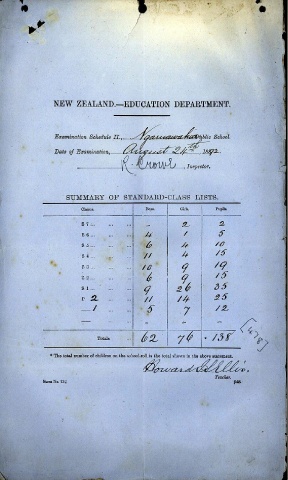 NEW ZEALAND.—EDUCATION DEPARTMENT.
Examination Schedule II., Ngaruawahia Public School.
Date of Examination, August 24th 1892
R Crowe, Inspector.
SUMMARY OF STANDARD-CLASS LISTS.
Classes. Boys. Girls. Pupils.
S 7 .. .. .. .. 2 2
S 6 .. .. .. 4 1 5
S 5 .. .. .. 6 4 10
S 4 .. .. .. 11 4 15
S 3 .. .. .. 10 9 19
S 2 .. .. .. 6 9 15
S 1 .. .. .. 9 26 35
P 2 .. .. .. 11 14 25
— 1 .. .. .. 5 7 12
Totals 62 76 138
[478]
* The total number of children on the school-roll is the total shown in the above statement.
Howard
Teacher.